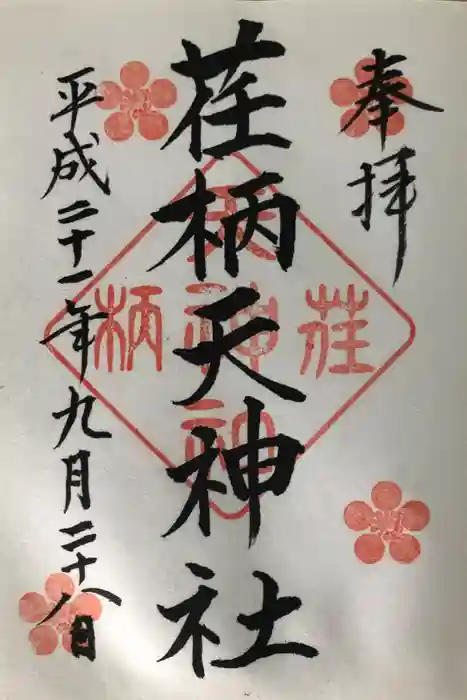 奉拝
荏柄天神社
平成二十一年九月二十八日
荏柄天神社